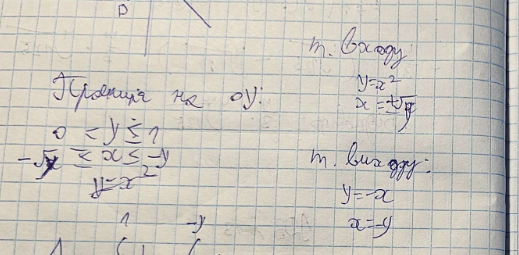 D
Проекція на oy:
0 ≤ y ≤ 1
-√y ≤ x ≤ -y
y = x²
1 -y
т. входу
y = x²
x = ±√y
т. виходу:
y = -x
x = -y